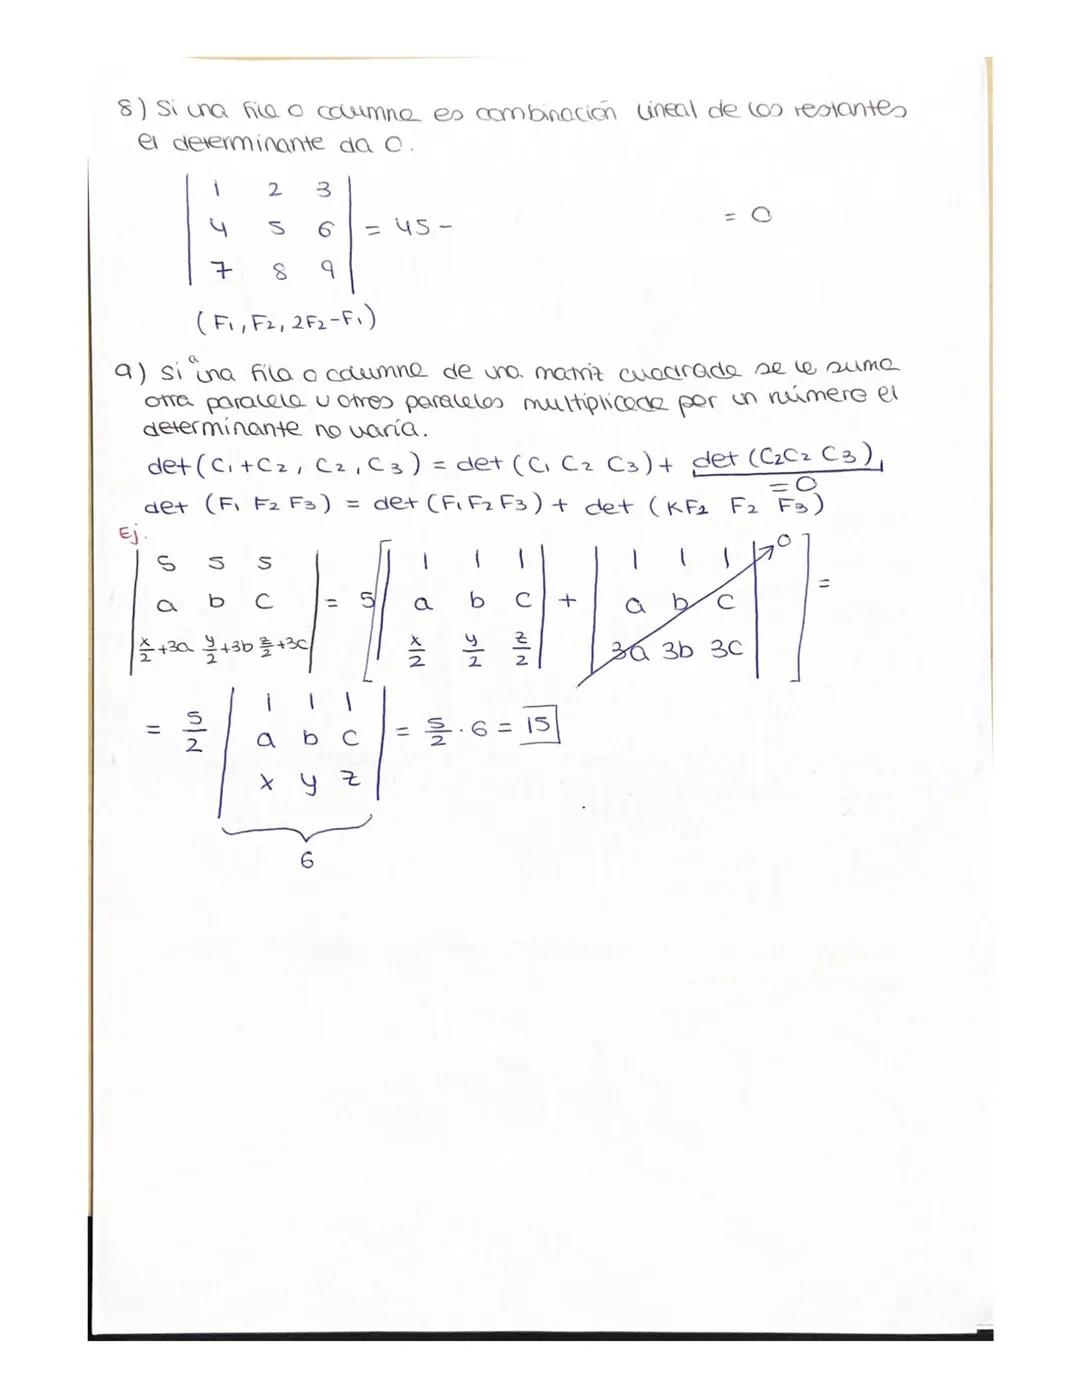 8) Si una fila o columna es combinación lineal de las restantes
el determinante da 0.
| 1 2 3 |
| 4 5 6 | = 45 - = 0
| 7 8 9 |
(F1, F2, 2F2-F1)
9) Si a una fila o columna de una matriz cuadrada se le suma
otra paralela u otras paralelas multiplicada por un número el
determinante no varía.
det (C1+C2, C2, C3) = det (C1 C2 C3) + det (C2C2 C3)
= 0
det (F1 F2 F3) = det (F1 F2 F3) + det (KF2 F2 F3)
Ej.
| 5 5 5 | = 5 [ | 1 1 1 | + | 1 1 1 | 0 ] =
| a b c | | a b c | | a b c |
| x/2+3a y/2+3b z/2+3c | | x/2 y/2 z/2 | | 3a 3b 3c |
= 5/2 | 1 1 1 | = 5/2 · 6 = 15
| a b c |
| x y z |
6